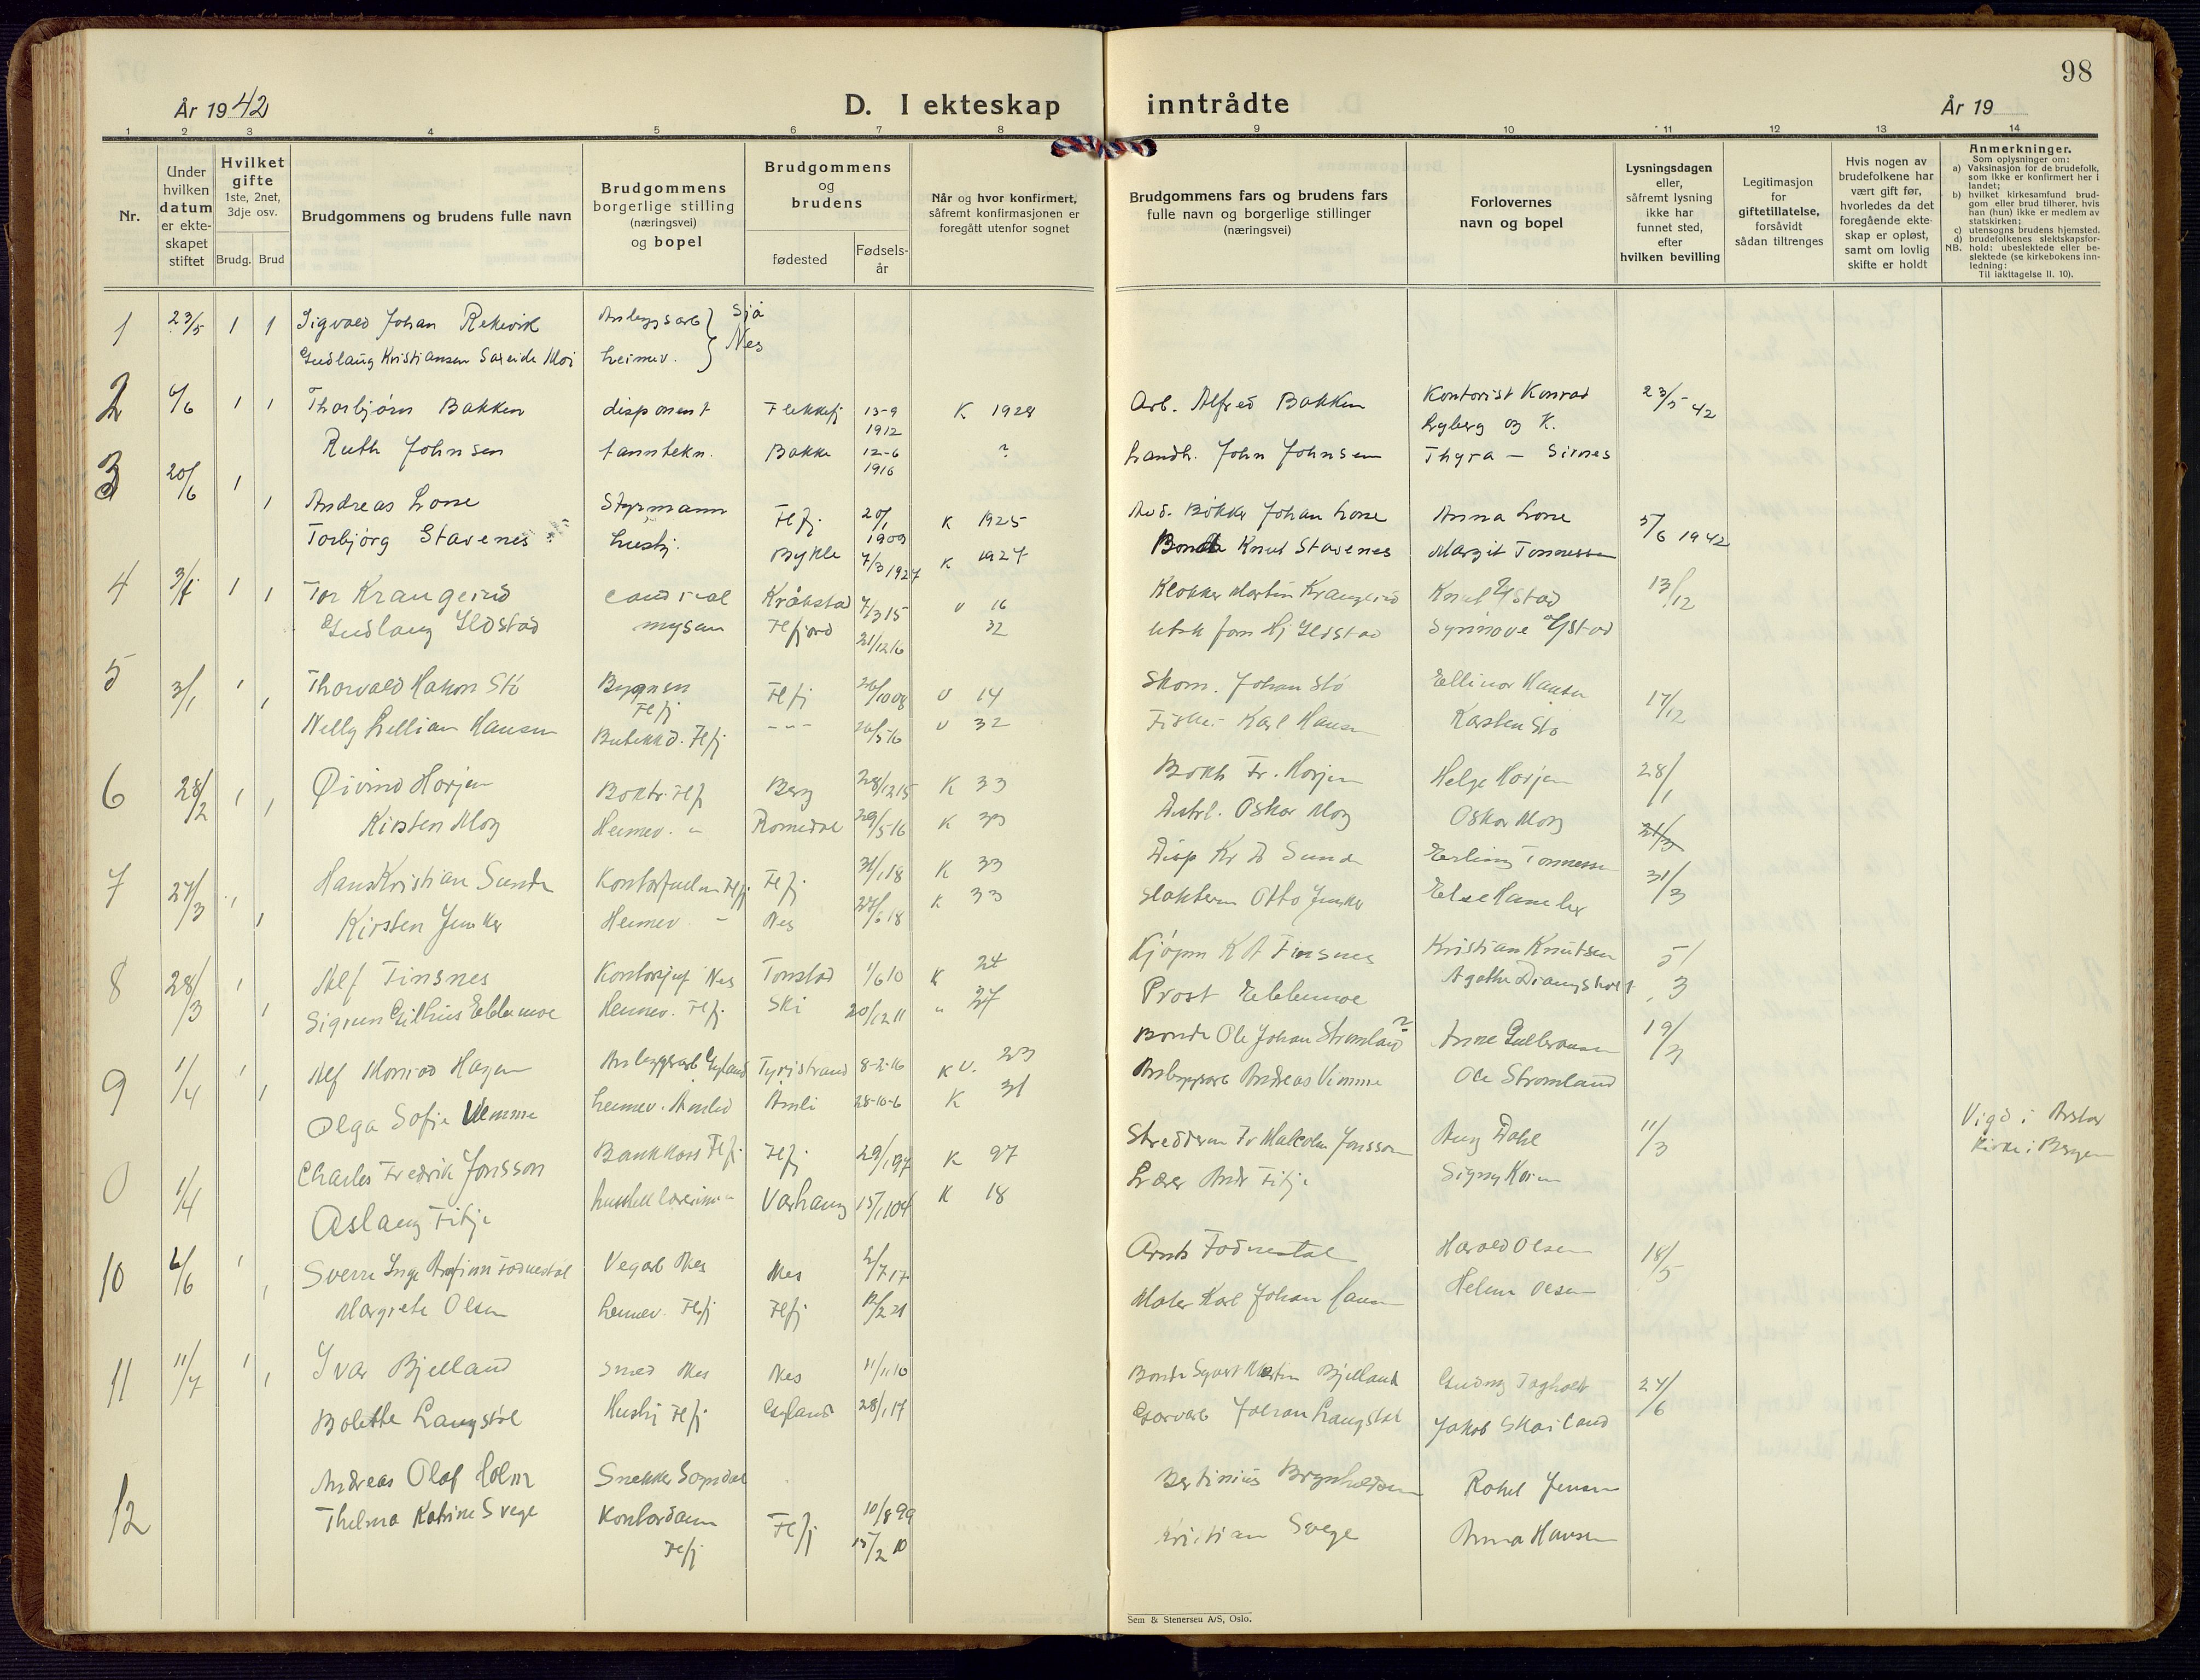 98
År 1942
D. I ekteskap inntrådte
År 19
1 2 3 4 5 6 7 8 9 10 11 12 13 14
Nr.
Under hvilken datum er ekteskapet stiftet
Hvilket gifte
1ste, 2net, 3dje osv.
Brudg. Brud
Brudgommens og brudens fulle navn
Brudgommens borgerlige stilling (næringsvei) og bopel
Brudgommens og brudens
fødested
Fødselsår
Når og hvor konfirmert, såfremt konfirmasjonen er foregått utenfor sognet
Brudgommens fars og brudens fars fulle navn og borgerlige stillinger (næringsvei)
Forlovernes navn og bopel
Lysningsdagen eller, såfremt lysning ikke har funnet sted, efter hvilken bevilling
Legitimasjon for giftetillatelse, forsåvidt sådan tiltrenges
Hvis nogen av brudefolkene har vært gift før, hvorledes da det foregående ekteskap er opløst, samt om lovlig skifte er holdt
Anmerkninger.
Som oplysninger om:
a) Vaksinasjon for de brudefolk, som ikke er konfirmert her i landet;
b) hvilket kirkesamfund brudgom eller brud tilhører, hvis han (hun) ikke er medlem av statskirken;
c) utensogns brudens hjemsted.
d) brudefolkenes slektskapsforhold: ubeslektede eller beslektede (se kirkebokens innledning:
NB. Til iakttagelse II. 10).
1 23/5 1 1 Sigvald Johan Rekevik Anleggsarb Sjå
Gudlaug Kristiansen Sareide Moi heimev. Nes
2 6/6 1 1 Thorbjørn Bakken disponent Flekkefj 13-9 1912 K 1928 Arb. Alfred Bakken Kontorist Konrad 23/5 42
Ryberg og K.
Ruth Johnsen tanntekn. Bakke 12-6 1916 ? Landh. John Johnsen Thyra – Sirnes
3 20/6 1
1 Andreas Lone Styrmann Flfj. 20/1 1909 K 1925 Avd. Bøkker Johan Lone Anna Lone 5/6 1942
Torbjørg Stavenes hushj. Bykle 7/3 1927 K 1927 Bonde Knut Stavenes Margit Tonnessen
4 1 1 Tor Krangerud Kråkstad 7/3 15 v 16 Klokker Martin Krangerud 13/12
Gudlaug Ildstad mysen Flfjord 21/12 16 32
5 3/1 1 Thorvald Hakon Stö Flfj 26/10 08 v 14 Skom. Johan Stö Ellinor Hansen 17/12
Flfj
1 Nelly Lillian Hansen Flfj. - " - 26/5 16 v 32 Fisker Karl Hansen Karsten Stö
6 28/2 1 Øivind Horjen Boktr. Flfj Berg 28/12 15 K 33 Fr. Horjen Helge Horjen 28/1
1 Kirsten Moy Heimev. " Romedal 29/5 16 K Oskar Moy Oskar Moy
7 27/3 1 Hans Kristian Sunde Flfj Flfj. 31/1 18 K 33 Disp Kr D Sunde Erling Tonnessen 31/3
1 Kirsten Junker Heimev. – Nes K 33 Otto Junker Else
8 28/3 1 Alf Tinsnes Nes Tonstad 1/6 10 K 24 Kjøpm K A Tinsnes Kristian Knutsen 5/3
1 Sigrun Gilhus Ebbemoe Heimev. Flfj. Ski 20/12 11 " 27 Prost Ebbemoe
9 1/4 1 Alf Monrad Hagen Anleggsarb Gyland Tyristrand 8-2-16 K v. 23 Bonde Ole Johan Stromland ? Anne Gulbransen
1 Olga Sofie Vemme heimev. Åmli 28-10-6 K 31 Anleggsarb Andreas Vemme Ole Stromland
0 1/4 Charles Fredrik Jonsson Flfj. Flfj. 29/1 97 K 97 Fr Malcolm Jonsson Aug Dahl 11/3 Vigd i Årstad
kirke i Bergen
Aslaug Fitje Varhaug K 18 Lærer Andr Fitje
10 6/6 1 Sverre Inge Arnfinn Fodnestøl Vegarb Nes Nes 2/7 17 Harald Olsen 18/5
1 Margrete Olsen heimev. Flfj Flfj 12/2 21 Maler Karl Johan Helene Olsen
11 11/7 1 Ivar Bjelland Smed Nes Nes 11/11 10 Bonde Martin Bjelland 27/6
1 Bolette Langstøl Hushj Flfj Gyland 28/1 17 Garvarb Johan Langstøl Jakob Skailand
12 Andreas Olaf Holm Snekker Sogndal Bertinius Rakel Jensen
Thelma Katrine Svege Kontordame Flfj 10/8 99 Kristian Svege Anna Hansen
Flfj 15/2 10
Sem & Stenersen A/S, Oslo.